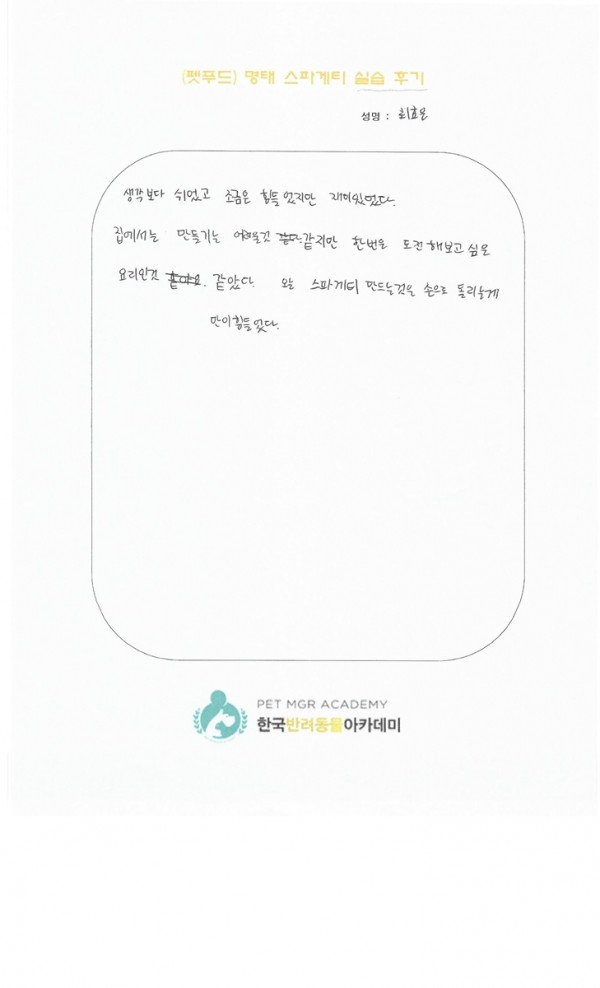 (펫푸드) 명태 스파게티 실습 후기
성명 : 최효은
생각보다 쉬었고 조금은 힘들었지만 재미있었다.
집에서는 만들기는 어려울것 같지만 한번은 도전해보고 싶은
요리인것 같았다. 오늘 스파게티 만드는것을 손으로 돌리는게
많이힘들었다.
PET MGR ACADEMY
한국반려동물아카데미